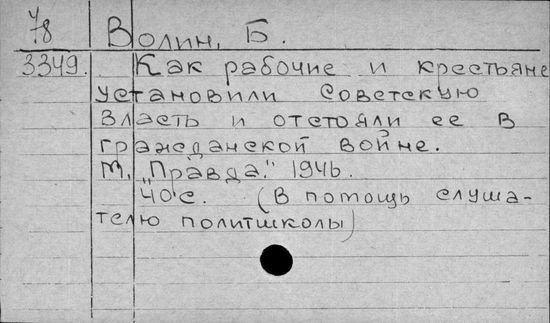 У8 Волин, Б.
3349. Как рабочие и крестьяне
установили Советскую
власть и отстояли ее в
гражданской войне.
М, „Правда." 1946.
40 с. (В потощь слуша-
телю политшколы)